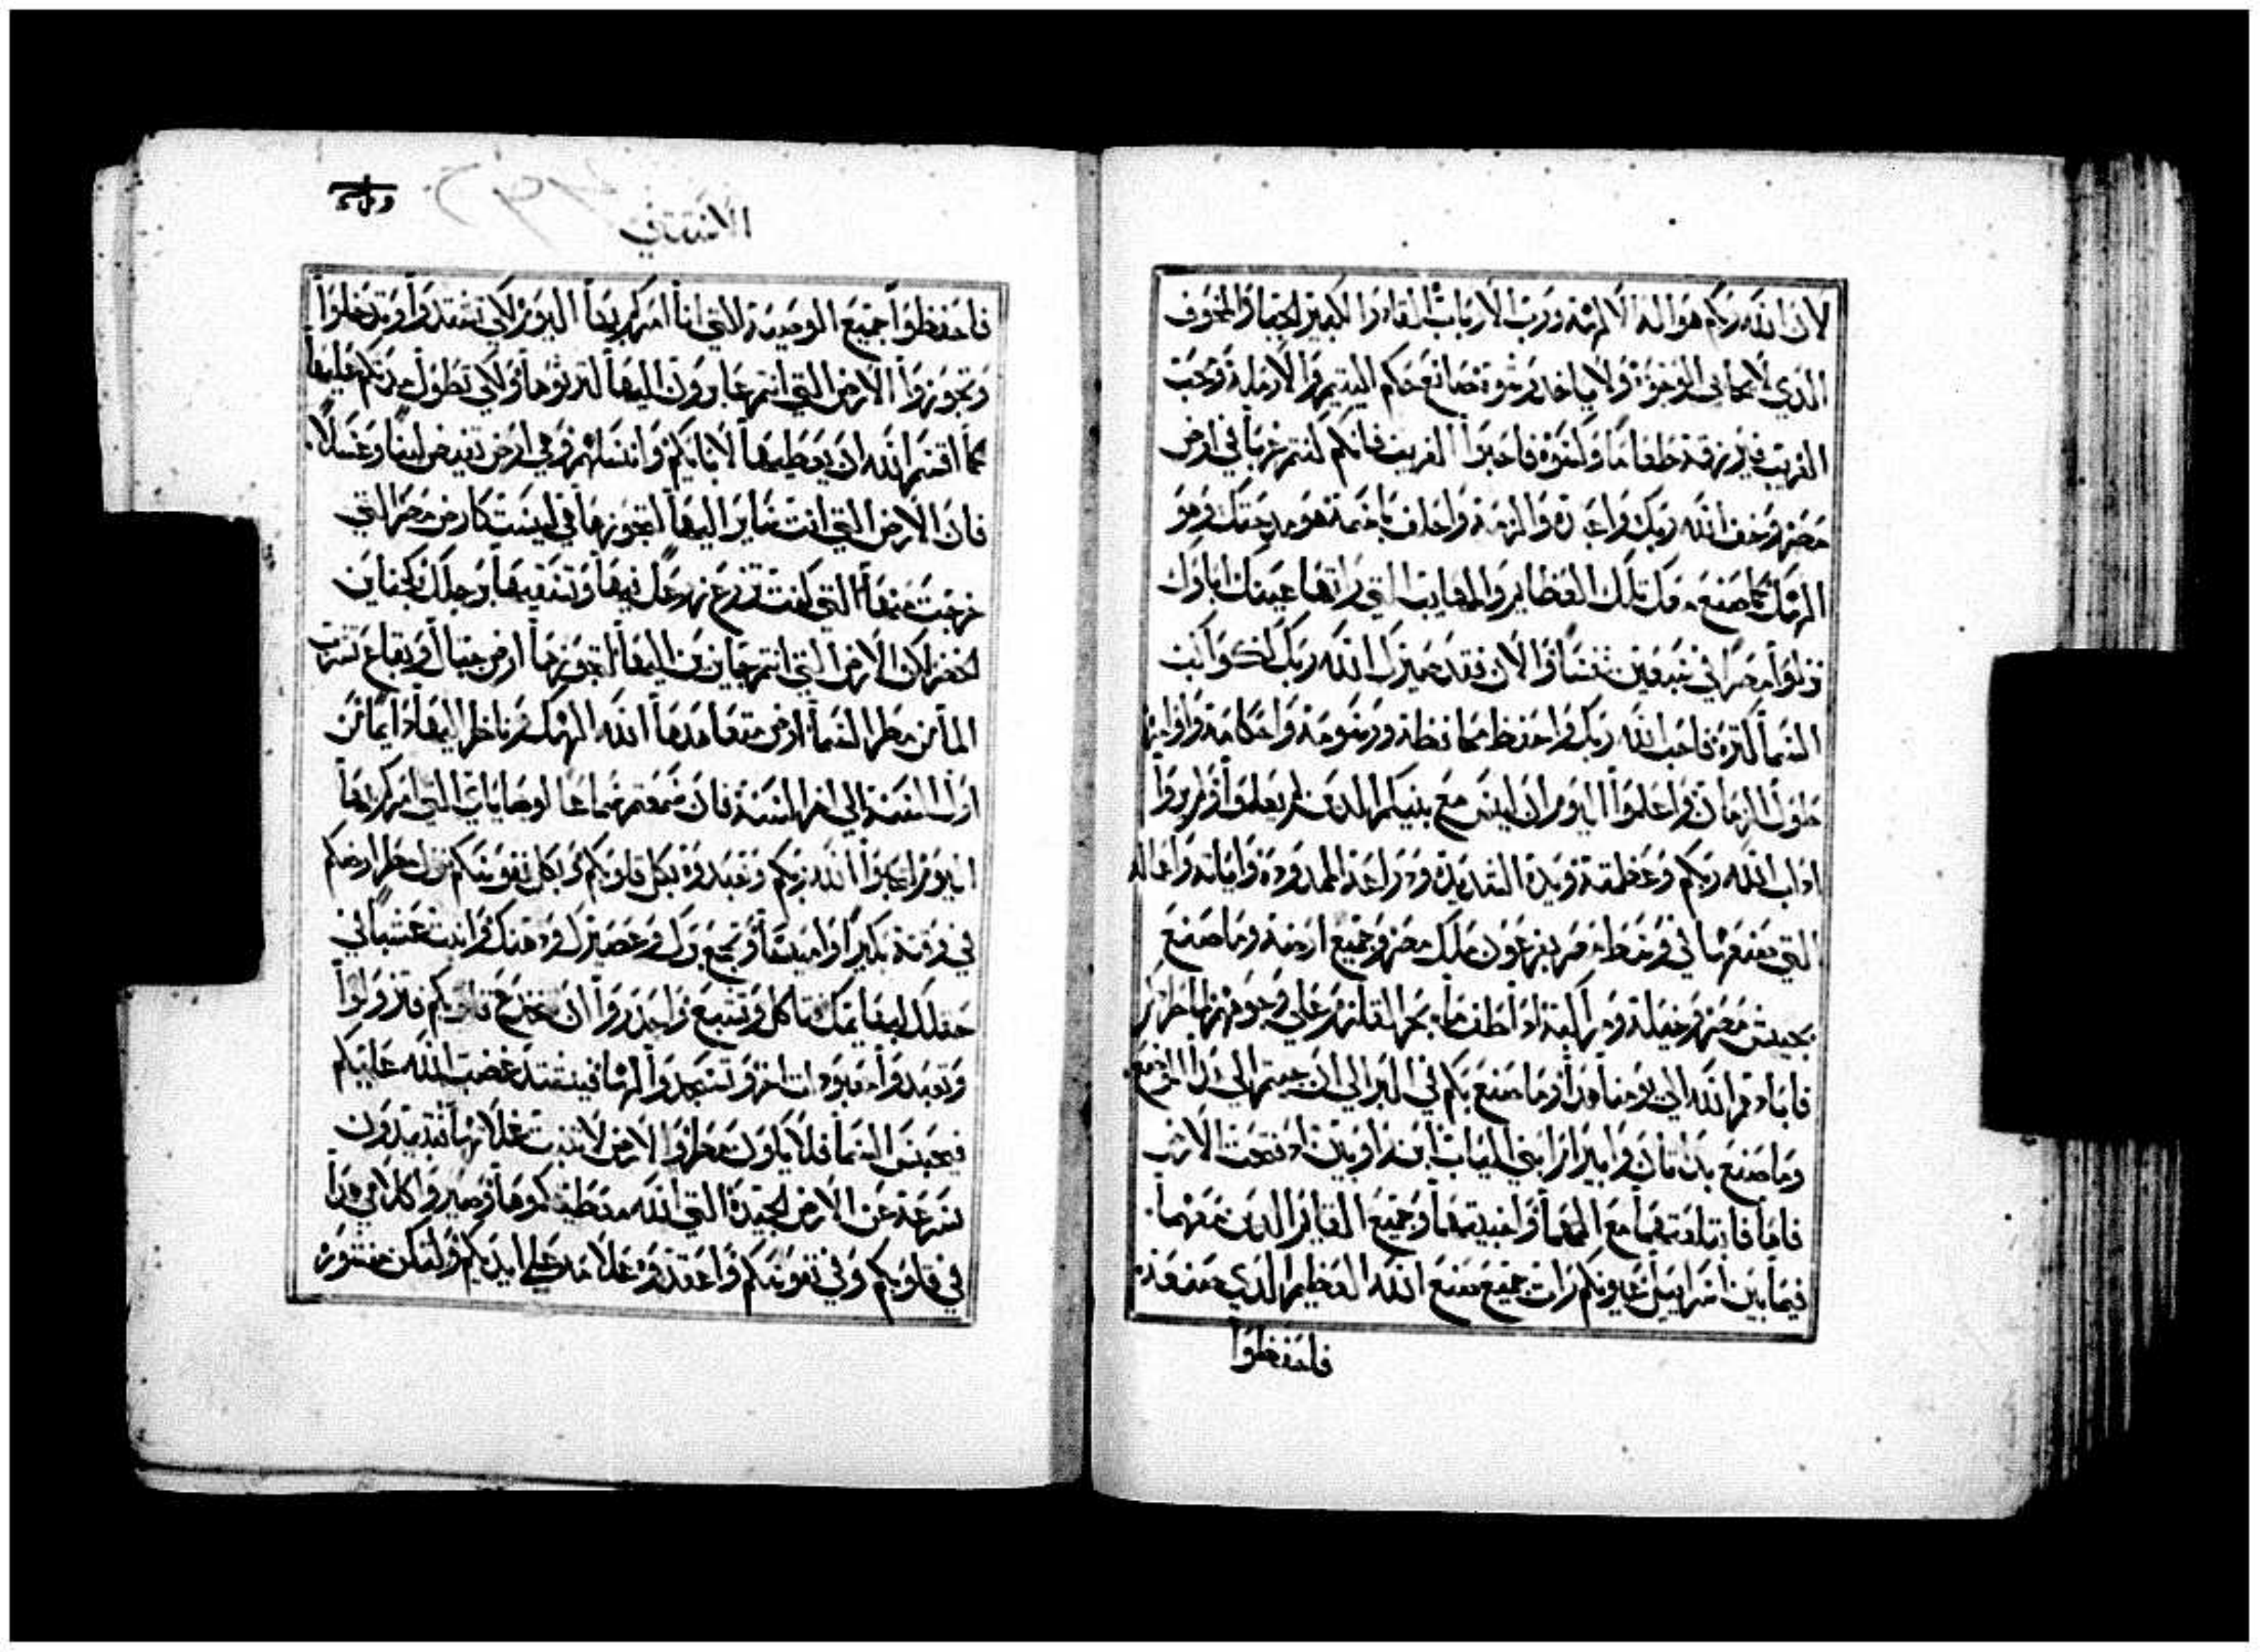 لان الله ربكم هو اله الالهه ورب الارباب القادر الكبير الجبار المخوف
الذي لا يحابى الوجوه ولا ياخد رشوه صانع حكم اليتيم والارمله ومحب
الغريب فيرزقه طعاما وكسوه فاحبوا الغريب فانكم كنتم غربا في ارض
مصر وخف الله ربك واعبده والزمه واحلف باسمه هو مدحتك وهو
الهك صنع معك تلك العظايم والمعايب التي راتها عينك اباوك
نزلوا مصر في سبعين نفسا والان فقد صيرك الله ربك ككواكب
السما كتره فاحب الله ربك واحفظ محافظه ورسومه واحكامه واوامره
طول الزمان واعلموا اليوم ان ليس مع بنيكم الدين لم يعلموا ولم يروا
اداب الله ربكم وعظمته ويده الشديده ودراعه الممدوده واياته وافعاله
التي صنعها في وسط مصر بفرعون ملك مصر وجميع ارضه وما صنع
بجيش مصر وخيله ومراكبه اد اطف ما بحر القلزم على وجوههم
فابادهم الله الى يومنا هدا وما صنع بكم في البر الى ان جيتم الى هدا الموضع
وما صنع بداتان وابيرام ابني الياب ابن راوبين اد فتحت الارض
فاها فابتلعتهما مع وابنيتهما وجميع الدين معهما
فيما بين اسراييل عيونكم رات جميع صنع الله العظيم الدي صنعه
فاحفظوا
الاستتني
فاحفظوا جميع الوصيه لاني انا امركم بها اليوم لكي تشتدوا وتدخلوا
وتحوزوا الارض التي انتم عابرون اليها لترثوها ولكي تطول مدتكم عليها
كما اقسم الله ان يعطيها لابايكم وانسالهم وهي ارض تفيض لبنا وعسلا
فان الارض التي انت صاير اليها لتحوزها هي ليست كارض مصر التي
خرجت منها التي كنت تزرع زرعك فيها وتسقيها برجلك كجنان
الخضر لكن الارض التي انتم جايزين اليها لتحوزها ارض جبال وبقاع تشرب
الما من مطر السما ارض متعاهدها الله الهك ناظر اليها دايما من
اول السنه الى اخر السنه فان سمعتم سماعا لوصاياي التي امركم بها
اليوم ان تحبوا الله ربكم وتعبدوه بكل قلوبكم وبكل نفوسكم نزل مطر ارضكم
في وقته بكيرا ولقيسا وتجمع برك وعصيرك ودهنك وانبت عشبا في
حقلك لبهايمك تاكل وتشبع واحدروا ان تنخدع قلوبكم فتزولوا
وتعبدوا معبودات اخر وتسجدوا لها فيشتد غضب الله عليكم
فيحبس السما فلا يكون مطر والارض لا تنبت غلاتها فتبيدون
بسرعه عن الارض الجيده التي الله معطيكموها وصيروا كلامي هدا
في قلوبكم وفي نفوسكم واعقدوه علامه على ايديكم ولتكن منشوره